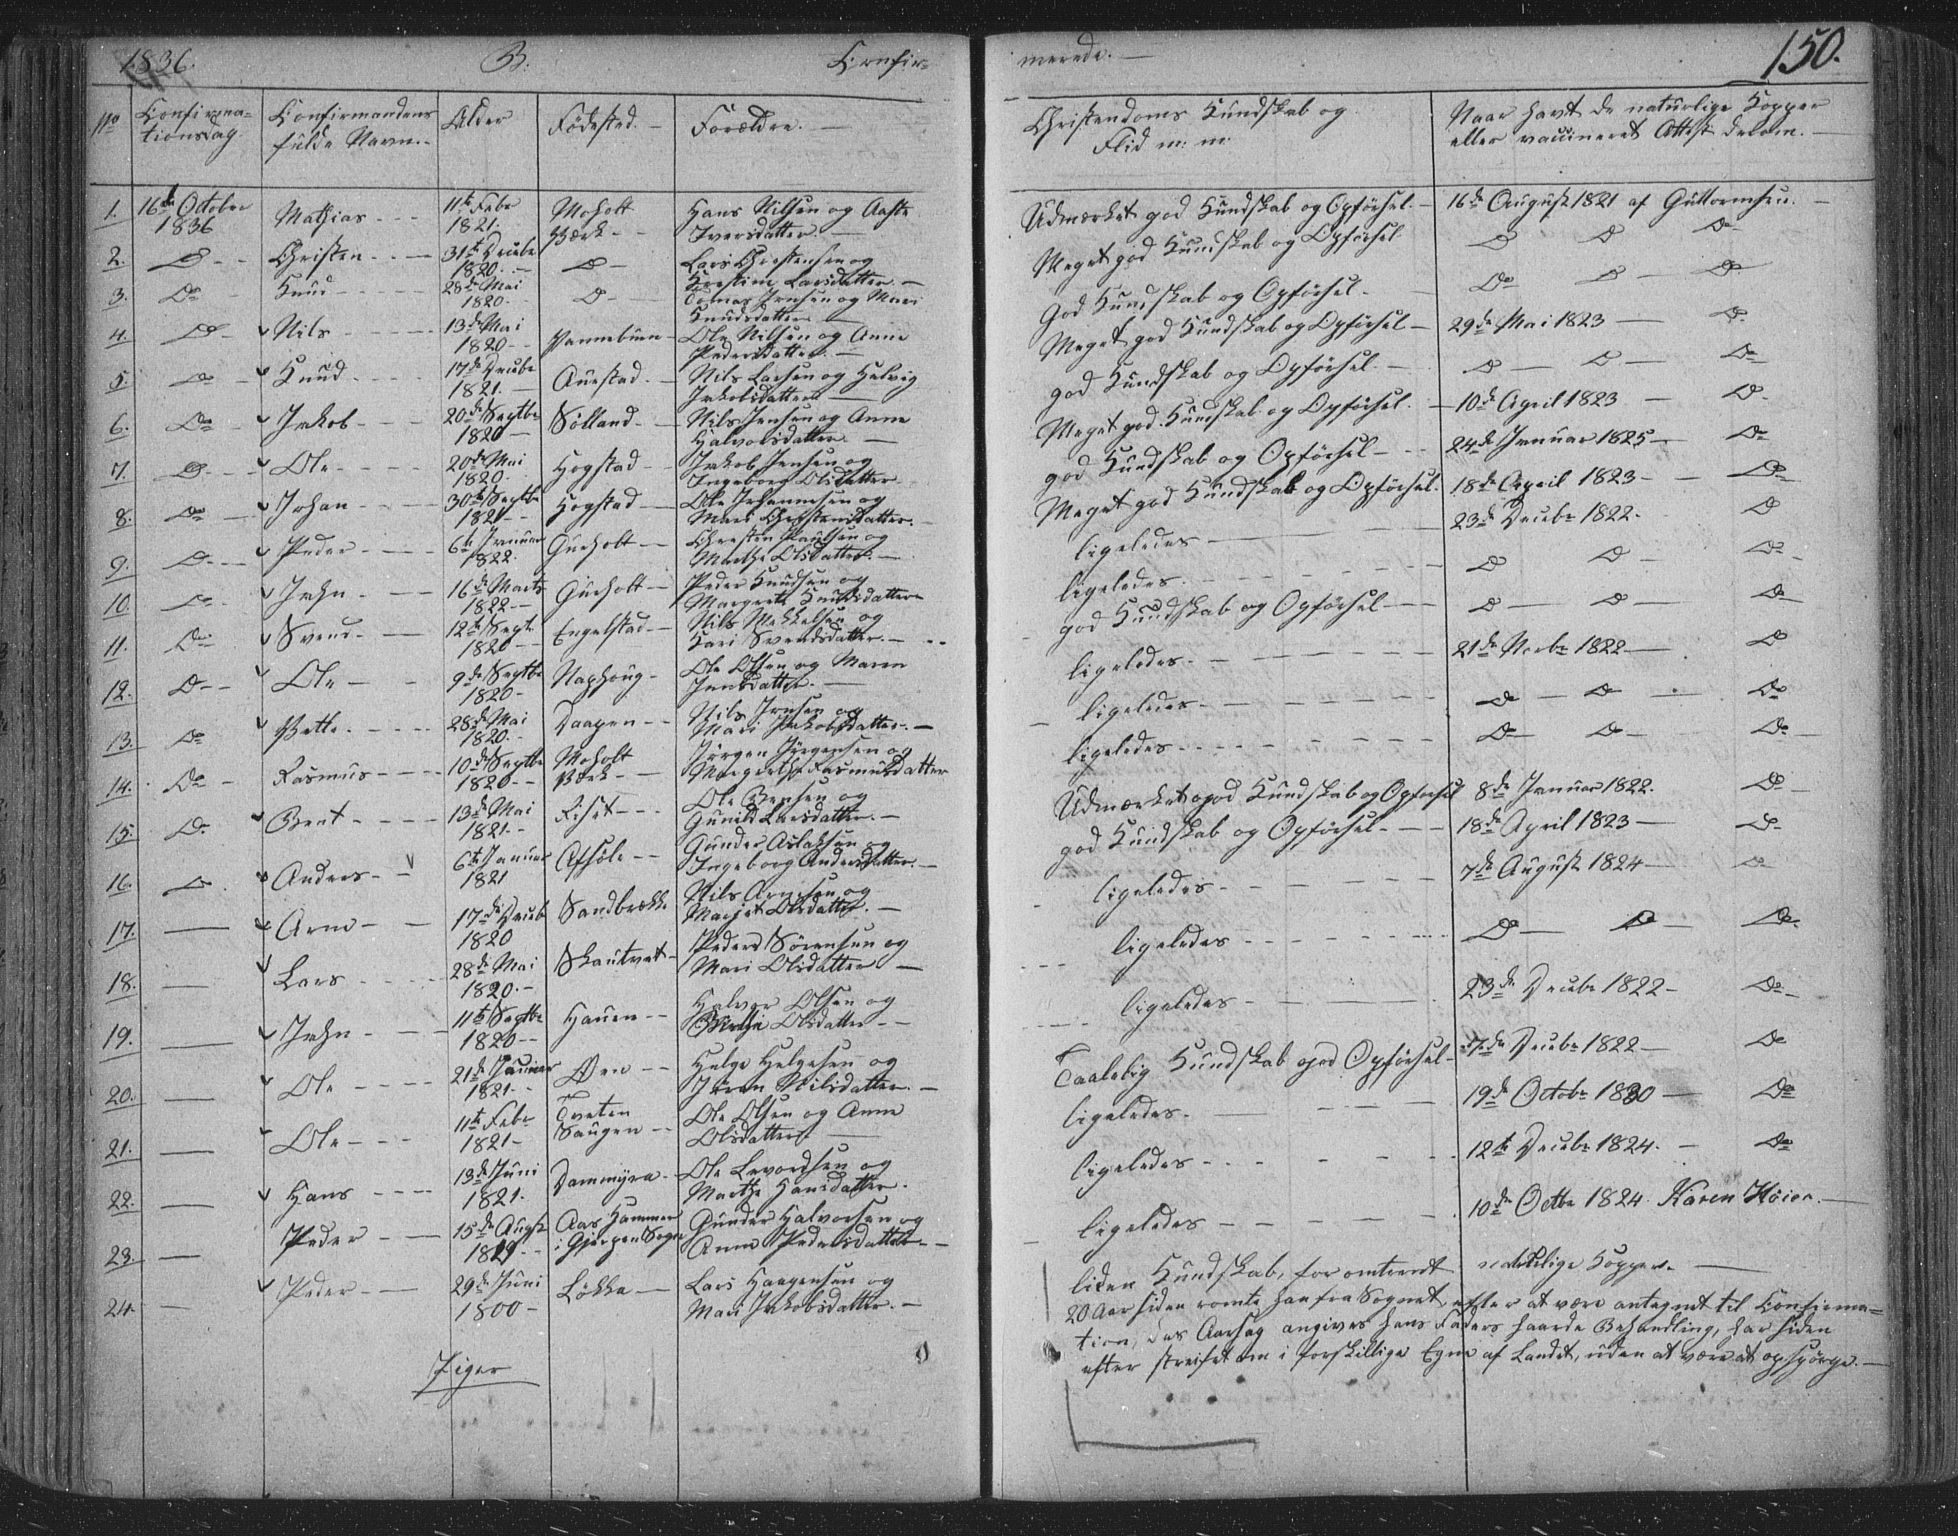 1836. B. Confir-
merede. — 150.
No Confirma- Confirmandens Alder Fødested. — Forældre. — Christendoms Kundskab og Naar havt de naturlige Kopper
tionsdag fulde Navn. Flid m: m: eller vaccineret Attest derom. —
1. 16de October Mathias 11te Febr Moholt Hans Nilsen og Aaste Udmærket god Kundskab og Opførsel. 16de August 1821 af Guttormsen. —
1836 1821. Værk Iversdatter. —
2. Do Christen 31te Decbr Do Lars Christensen og Meget god Kundskab og Opførsel Do Do Do
1820. Kirstine Larsdatter. —
3. Do Knud 28de Mai Do Tomas Jensen og Mari God Kundskab og Opførsel. Do Do Do
1820. Knudsdatter
4. Do Nils 13de Mai Ole Nilsen og Anne Meget god Kundskab og Opførsel 29de Mai 1823 Do
1820 Pedersdatter. —
5. Do Knud 17de Decbr Auestad. Nils Larsen og Helvig god Kundskab og Opførsel. Do Do Do
1821. Jakobsdatter
6. Do Jakob 20de Septbr Sølland. Nils Jensen og Anne Meget god Kundskab og Opførsel. 10de April 1823 Do
1820 Halvorsdatter —
7. Do Ole 20de Mai Hogstad Jakob Jensen og god Kundskab og Opførsel 24de Januar 1825 Do
1820. Ingeborg Olsdatter
8. Do Johan 30te Septbr Hogstad Ole Johannesen og Meget god Kundskab og Opførsel. 18de April 1823 Do
1821 Mari Christensdatter.
9. Do Peder 6te Januar Gurholt Christen Paulsen og ligeledes 23de Decebr 1822. Do
1822. Marthe Olsdatter. —
10. Do John 16de Marts Gurholt Peder Knudsen og ligeledes. Do Do Do
1822 Margrete Knudsdatter
11. Do Svend 12te Sept. Engelstad Nils Mekkelsen og god Kundskab og Opførsel Do Do Do
1820 Kari Svendsdatter.
12. Do Ole 9de Septbr Naphoug Ole Olsen og Maren ligeledes. 21de Novbr 1822 Do
1820 Jensdatter. —
13. Do Pette 28de Mai Daapen Nils Jensen og ligeledes Do Do Do
1820. Mari Jakobsdatter. —
14. Do Rasmus 10de Septbr Moholt Jørgen Jørgensen og ligeledes Do Do Do
1820 Værk Margrethe Rasmusdatter
15. Do Bent 13de Mai Riset Ole Bensen og Udmærket god Kundskab og Opførsel 8de Januar 1822. Do
1821. Gunild Larsdatter. —
16. Do Anders 6te Januar Gunder Aslaksen og god Kundskab og Opførsel 18de April 1823 Do
1821 Ingeborg Andersdatter. —
17. — Arne 17de Decbr Sandbrække Nils Arnesen og ligeledes 7de August 1824 Do
1820 Marjet Olsdatter. —
18. — Lars 28de Mai Skautvet Peder Sørensen og ligeledes Do Do Do
1820. Mari Olsdatter —
19. — John 11te Septbr Hauen Halvor Olsen og ligeledes 23de Decebr 1822 Do
1820 Marthe Olsdatter
20. — Ole 21de Januar Øen Helge Helgesen og Taalelig Kundskab god Opførsel 7de Decebr 1822 Do
1821. Jøran Nilsdatter. —
21. — Ole 11te Febr Tveten Ole Olsen og Anne ligeledes. 19de Octobr 1830 Do
1821 Saugen Olsdatter —
22. — Hans 13de Juni Dammyra Ole Levordsen og ligeledes 12te Decebr 1824. Do
1821. Marthe Hansdatter.
23. — Peder 15de Augst Aas Hammer Gunder Halvorsen og ligeledes 10de Octbr 1824 Karen Høier. —
1819 i Gjerpen Sogn Anne Pedersdatter
24. — Peder 29de Juni Løkka Lars Haagensen og liden Kundskab, for omtrent naturlige Kopper. —
1800 Mari Jakobsdatter. — 20 Aar siden rømte han fra Sognet efter at være antegnet til Confirma-
tion, des Aarsag angives hans Faders haarde Behandling, har siden
efter streifet om i forskillige Egne af Landet, uden at være at opspørge. —
Piger